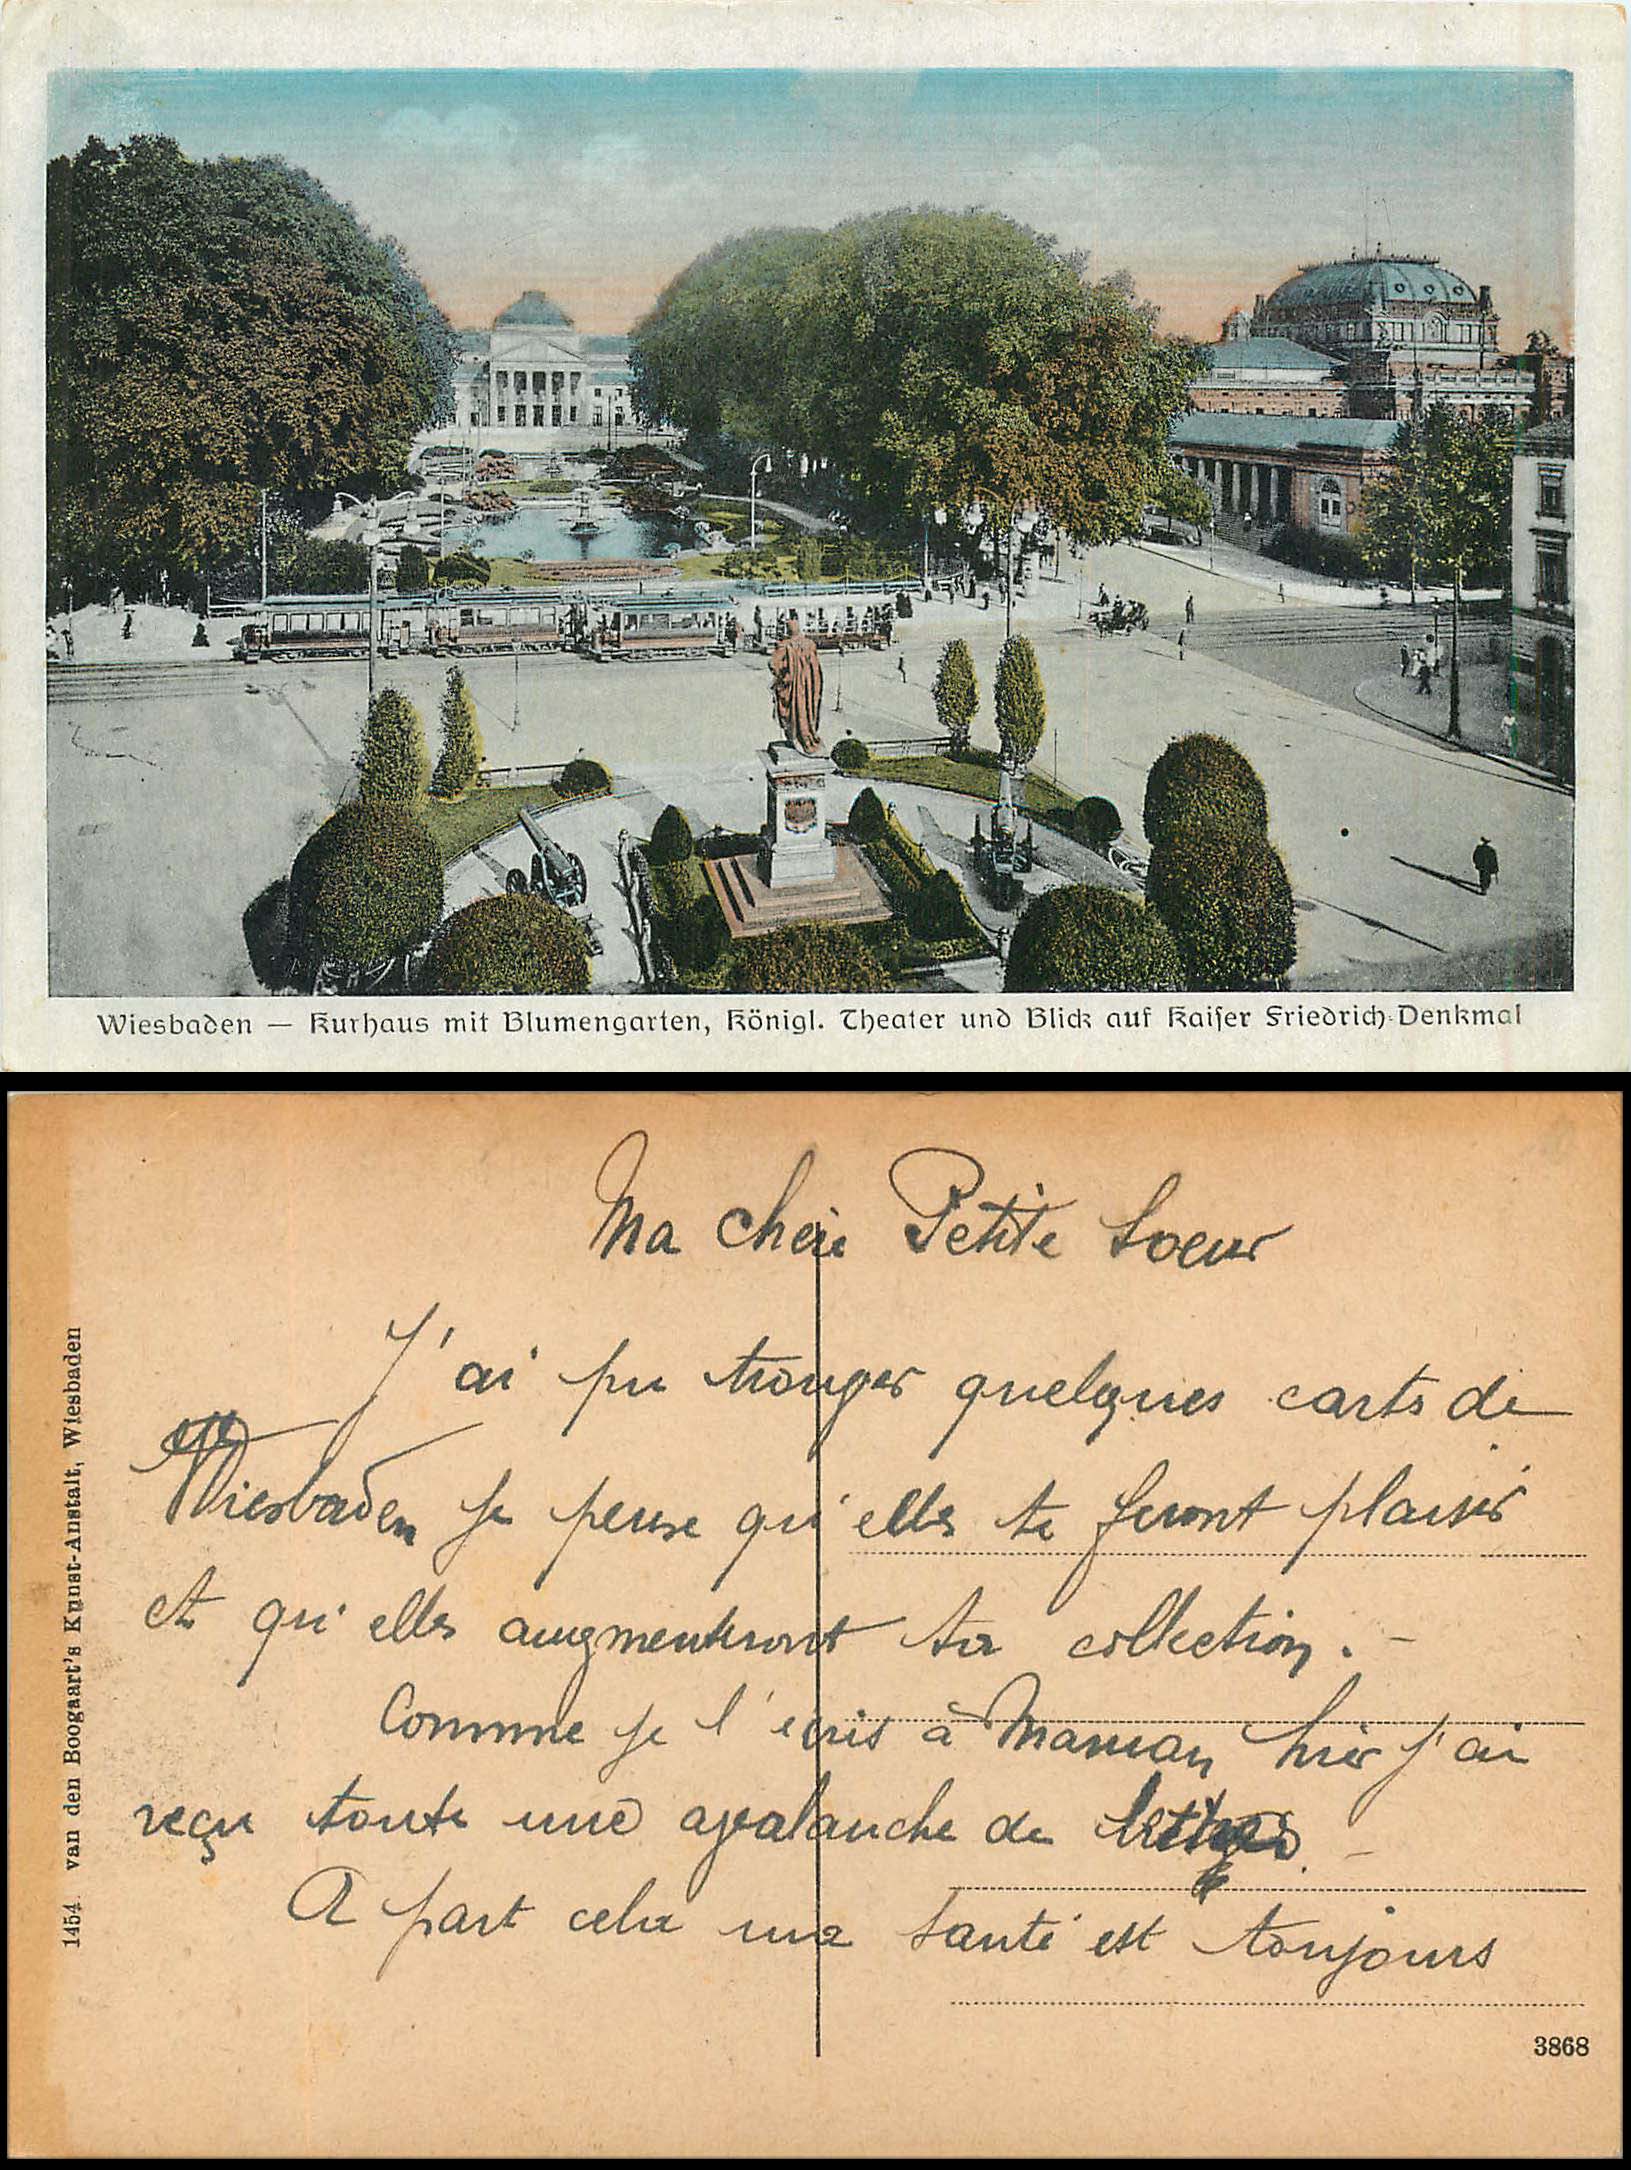 Wiesbaden — Kurhaus mit Blumengarten, Königl. Theater und Blick auf Kaiser Friedrich-Denkmal
Ma chère Petite Soeur
J'ai pu trouver quelques carts de
Wiesbaden je pense qu'elles te feront plaisir
et qu'elles augmenteront ta collection. -
Comme je l'écris à Maman hier j'ai
reçu toute une avalanche de lettres. -
A part cela ma santé est toujours
1454 van den Boogaart's Kunst-Anstalt, Wiesbaden
3868